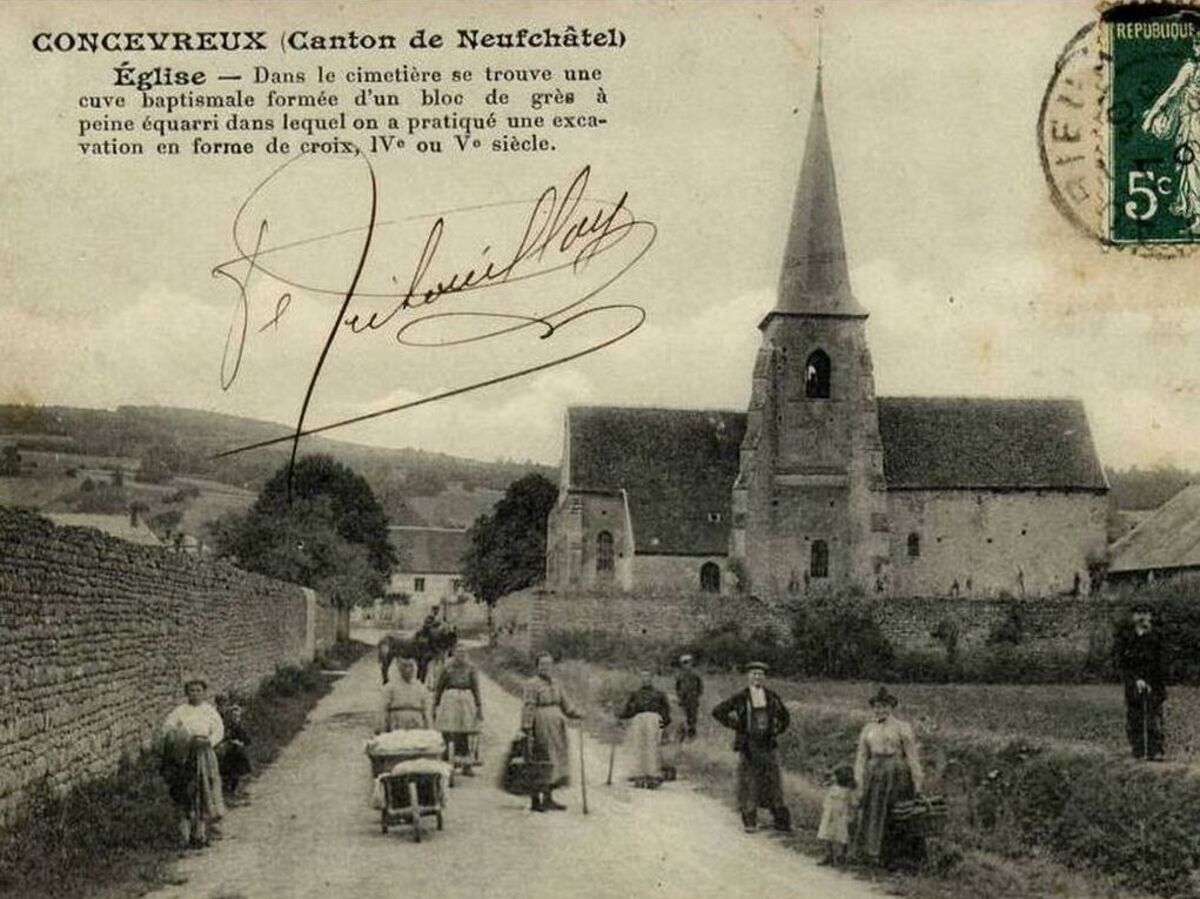 CONCEVREUX (Canton de Neufchâtel)
Église — Dans le cimetière se trouve une
cuve baptismale formée d'un bloc de grès à
peine équarri dans lequel on a pratiqué une exca-
vation en forme de croix, IVe ou Ve siècle.
REPUBLIQUE
5c